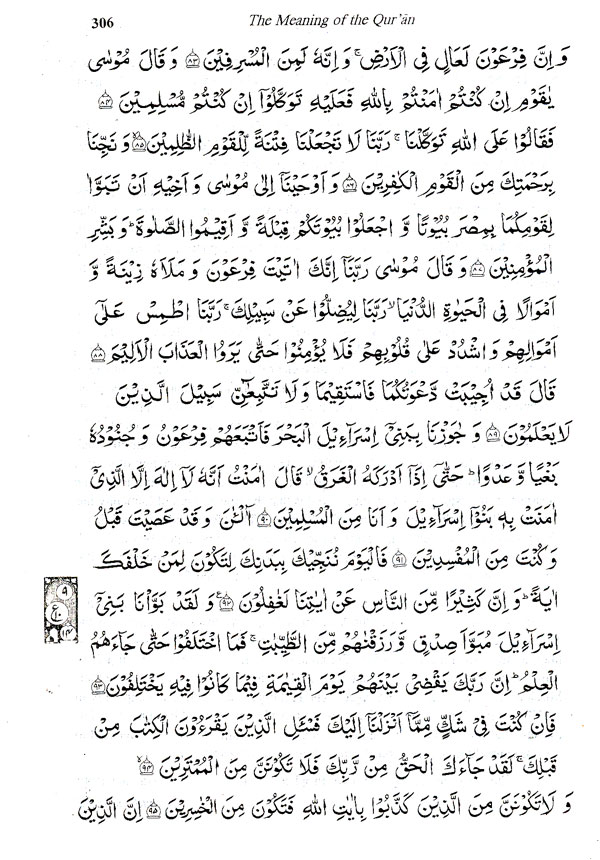 306 The Meaning of the Qur'ān
وَ اِنَّ فِرْعَوْنَ لَعَالٍ فِى الْاَرْضِ ۚ وَ اِنَّهٗ لَمِنَ الْمُسْرِفِيْنَ ﴿۸۳﴾ وَ قَالَ مُوْسٰى
يٰقَوْمِ اِنْ كُنْتُمْ اٰمَنْتُمْ بِاللّٰهِ فَعَلَيْهِ تَوَكَّلُوْٓا اِنْ كُنْتُمْ مُّسْلِمِيْنَ ﴿۸۴﴾
فَقَالُوْا عَلَى اللّٰهِ تَوَكَّلْنَا ۚ رَبَّنَا لَا تَجْعَلْنَا فِتْنَةً لِّلْقَوْمِ الظّٰلِمِيْنَ ﴿۸۵﴾ وَ نَجِّنَا
بِرَحْمَتِكَ مِنَ الْقَوْمِ الْكٰفِرِيْنَ ﴿۸۶﴾ وَ اَوْحَيْنَآ اِلٰى مُوْسٰى وَ اَخِيْهِ اَنْ تَبَوَّاٰ
لِقَوْمِكُمَا بِمِصْرَ بُيُوْتًا وَّ اجْعَلُوْا بُيُوْتَكُمْ قِبْلَةً وَّ اَقِيْمُوا الصَّلٰوةَ ؕ وَ بَشِّرِ
الْمُؤْمِنِيْنَ ﴿۸۷﴾ وَ قَالَ مُوْسٰى رَبَّنَآ اِنَّكَ اٰتَيْتَ فِرْعَوْنَ وَ مَلَاَهٗ زِيْنَةً وَّ
اَمْوَالًا فِى الْحَيٰوةِ الدُّنْيَا ۙ رَبَّنَا لِيُضِلُّوْا عَنْ سَبِيْلِكَ ۚ رَبَّنَا اطْمِسْ عَلٰٓى
اَمْوَالِهِمْ وَ اشْدُدْ عَلٰى قُلُوْبِهِمْ فَلَا يُؤْمِنُوْا حَتّٰى يَرَوُا الْعَذَابَ الْاَلِيْمَ ﴿۸۸﴾
قَالَ قَدْ اُجِيْبَتْ دَّعْوَتُكُمَا فَاسْتَقِيْمَا وَ لَا تَتَّبِعٰٓنِّ سَبِيْلَ الَّذِيْنَ
لَا يَعْلَمُوْنَ ﴿۸۹﴾ وَ جٰوَزْنَا بِبَنِىْٓ اِسْرَآءِيْلَ الْبَحْرَ فَاَتْبَعَهُمْ فِرْعَوْنُ وَ جُنُوْدُهٗ
بَغْيًا وَّ عَدْوًا ؕ حَتّٰٓى اِذَآ اَدْرَكَهُ الْغَرَقُ ۙ قَالَ اٰمَنْتُ اَنَّهٗ لَآ اِلٰهَ اِلَّا الَّذِىْٓ
اٰمَنَتْ بِهٖ بَنُوْٓا اِسْرَآءِيْلَ وَ اَنَا مِنَ الْمُسْلِمِيْنَ ﴿۹۰﴾ آٰلْـٰٔنَ وَ قَدْ عَصَيْتَ قَبْلُ
وَ كُنْتَ مِنَ الْمُفْسِدِيْنَ ﴿۹۱﴾ فَالْيَوْمَ نُنَجِّيْكَ بِبَدَنِكَ لِتَكُوْنَ لِمَنْ خَلْفَكَ
اٰيَةً ؕ وَ اِنَّ كَثِيْرًا مِّنَ النَّاسِ عَنْ اٰيٰتِنَا لَغٰفِلُوْنَ ﴿۹۲﴾ وَ لَقَدْ بَوَّاْنَا بَنِىْٓ
اِسْرَآءِيْلَ مُبَوَّاَ صِدْقٍ وَّ رَزَقْنٰهُمْ مِّنَ الطَّيِّبٰتِ ۚ فَمَا اخْتَلَفُوْا حَتّٰى جَآءَهُمُ
الْعِلْمُ ؕ اِنَّ رَبَّكَ يَقْضِىْ بَيْنَهُمْ يَوْمَ الْقِيٰمَةِ فِيْمَا كَانُوْا فِيْهِ يَخْتَلِفُوْنَ ﴿۹۳﴾
فَاِنْ كُنْتَ فِىْ شَكٍّ مِّمَّآ اَنْزَلْنَآ اِلَيْكَ فَسْـَٔلِ الَّذِيْنَ يَقْرَءُوْنَ الْكِتٰبَ مِنْ
قَبْلِكَ ۚ لَقَدْ جَآءَكَ الْحَقُّ مِنْ رَّبِّكَ فَلَا تَكُوْنَنَّ مِنَ الْمُمْتَرِيْنَ ﴿۹۴﴾
وَ لَا تَكُوْنَنَّ مِنَ الَّذِيْنَ كَذَّبُوْا بِاٰيٰتِ اللّٰهِ فَتَكُوْنَ مِنَ الْخٰسِرِيْنَ ﴿۹۵﴾ اِنَّ الَّذِيْنَ